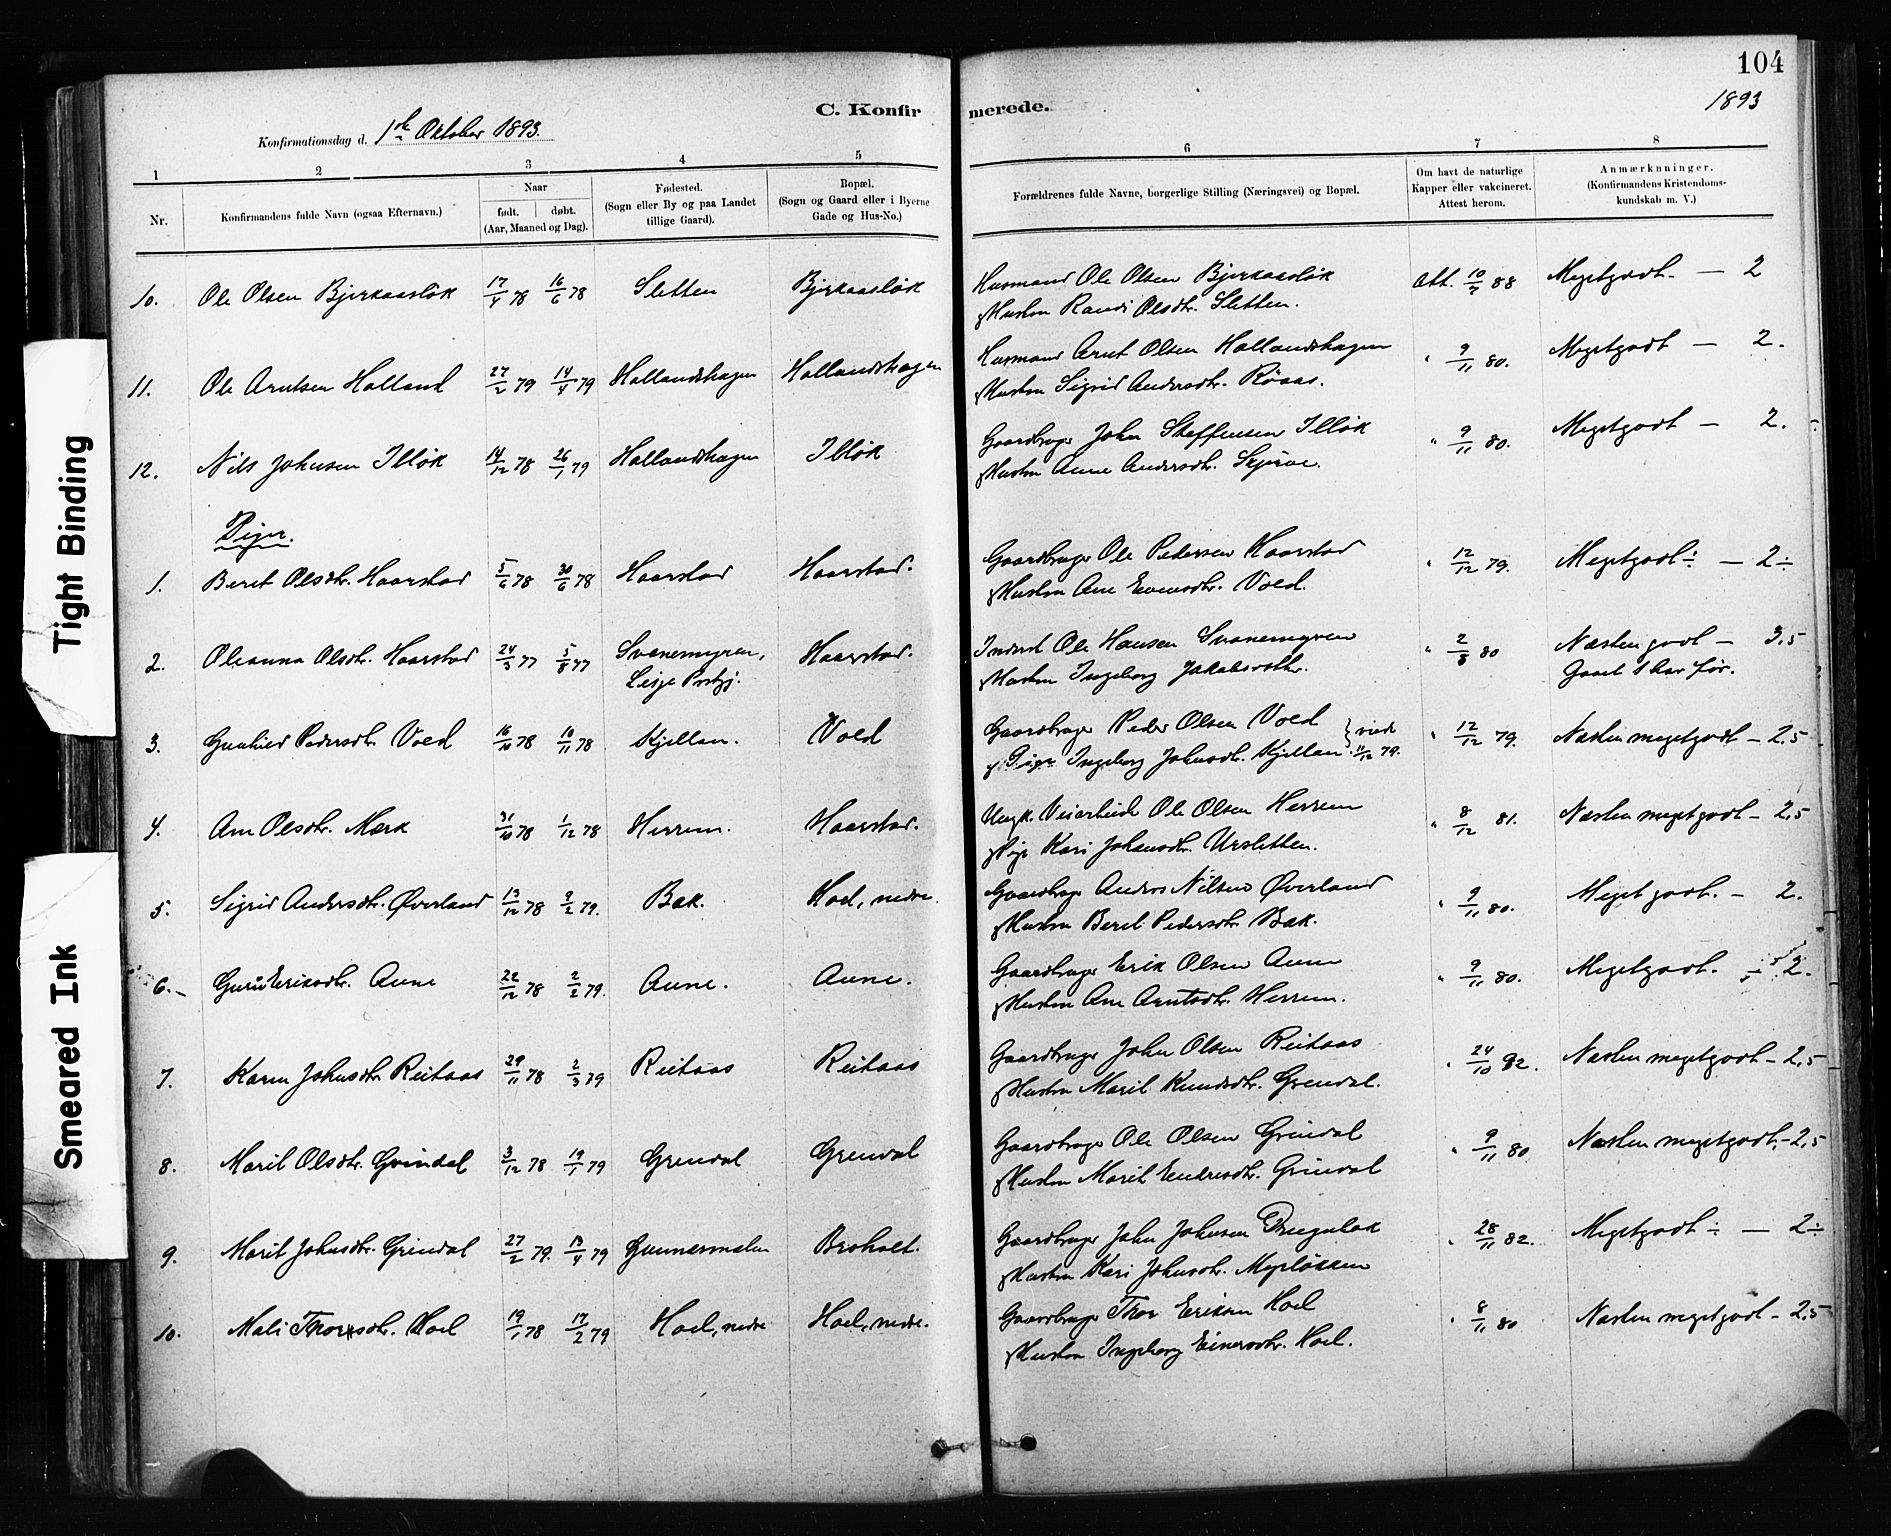 104
1893
C. Konfirmerede.
Konfirmationsdag d. 1ste Oktober 1893.
1 2 3 4 5 6 7 8
Nr.
Konfirmandens fulde Navn (ogsaa Efternavn).
Naar født. døbt. (Aar, Maaned og Dag).
Fødested. (Sogn eller By og paa Landet tillige Gaard).
Bopæl. (Sogn og Gaard eller i Byerne Gade og Hus-No.)
Forældrenes fulde Navne, borgerlige Stilling (Næringsvei) og Bopæl.
Om havt de naturlige Kapper eller vakcineret. Attest herom.
Anmærknninger. (Konfirmandens Kristendoms-kundskab m. V.)
10. Ole Olsen Bjerkaasløk 17/4 78 16/6 78 Sletten Bjerkaasløk Husmand Ole Olsen Bjerkaasløk Att. 10/7 88 Megetgodt. — 2
& Hustru Randi Olsdtr. Sletten.
11. Ole Arntsen Holland 27/2 79 14/4 79 Hollandshagen Hollandshagen Husmand Arnt Olsen Hollandshagen " 9/11 80. Megetgodt — 2.
& Hustru Sigrid Andersdtr. Röaas.
12. Nils Johnsen Illøk 14/12 78 26/1 79 Hollandshagen Illøk Gaardbruger John Steffensen Illøk " 9/11 80. Megetgodt — 2.
& Hustru Anne Andersdtr. Skjerve.
Piger.
1. Beret Olsdtr. Haarstad 5/6 78 30/6 78 Haarstad Haarstad. Gaardbruger Ole Pedersen Haarstad " 12/12 79. Megetgodt ÷ — 2÷
& Hustru Ane Evensdtr. Voed.
2. Oleanna Olsdtr. Haarstad 24/3 77 5/8 77 Svanemyren, Haarstad. Inderst Ole Hansen Svanemyren " 2/8 80 Næsten godt — 3,5
Lesje Prstgj. & Hustru Ingeborg Jakobsdtr. Gaaet 1 Aar før.
3. Gunhild Pedersdtr. Voed 16/10 78 10/11 78 Kjellan. Voed Gaardbruger Peder Olsen Voed } viede " 12/12 79. Næsten megetgodt — 2,5
& Pige Ingeborg Johnsdtr. Kjellan. 11/12 79.
4. Ane Olsdtr. Mærk 31/10 78 1/12 78 Herrem. Haarstad. Ungk. Veiarbeid. Ole Olsen Herrem " 8/12 81. Næsten megetgodt — 2,5
& Pige Kari Johansdtr. Ursletten.
5. Sigrid Andersdtr. Øverland 13/12 78 9/2 79. Bak. Hoel, nedre. Gaardbruger Anders Nilsen Øverland " 9/11 80. Meget godt. — 2.
& Hustru Beret Pedersdtr. Bak.
6. Guru Eriksdtr. Aune 22/12 78 2/2 79. Aune. Aune. Gaardbruger Erik Olsen Aune " 9/11 80. Megetgodt. — 2.
& Hustru Ane Arntsdtr. Herrem.
7. Karen Johnsdtr. Reitaas 29/11 78 2/3 79 Reitaas Reitaas Gaardbruger John Olsen Reitaas " 24/10 82. Næsten megetgodt — 2,5
& Hustru Marit Knudsdtr. Grendal.
8. Marit Olsdtr. Grindal 3/12 78 19/1 79 Grendal Grendal Gaardbruger Ole Olsen Grindal " 9/11 80 Næsten megetgodt — 2,5
& Hustru Marit Endresdtr. Grindal
9. Marit Johnsdtr. Grindal 27/2 79. 13/4 79 Gunnesmælen Broholt. Gaardbruger John Johnsen " 28/11 82. Megetgodt ÷ — 2÷
& Hustru Kari Johnsdtr. Myrløkken
10. Mali Thorsdtr. Hoel 19/1 78 17/2 79 Hoel, nedre Hoel, nedre. Gaardbruger Thor Eriksen Hoel " 8/11 80 Næsten megetgodt — 2,5
& Hustru Ingeborg Einersdtr. Hoel.
Tight Binding
Smeared Ink